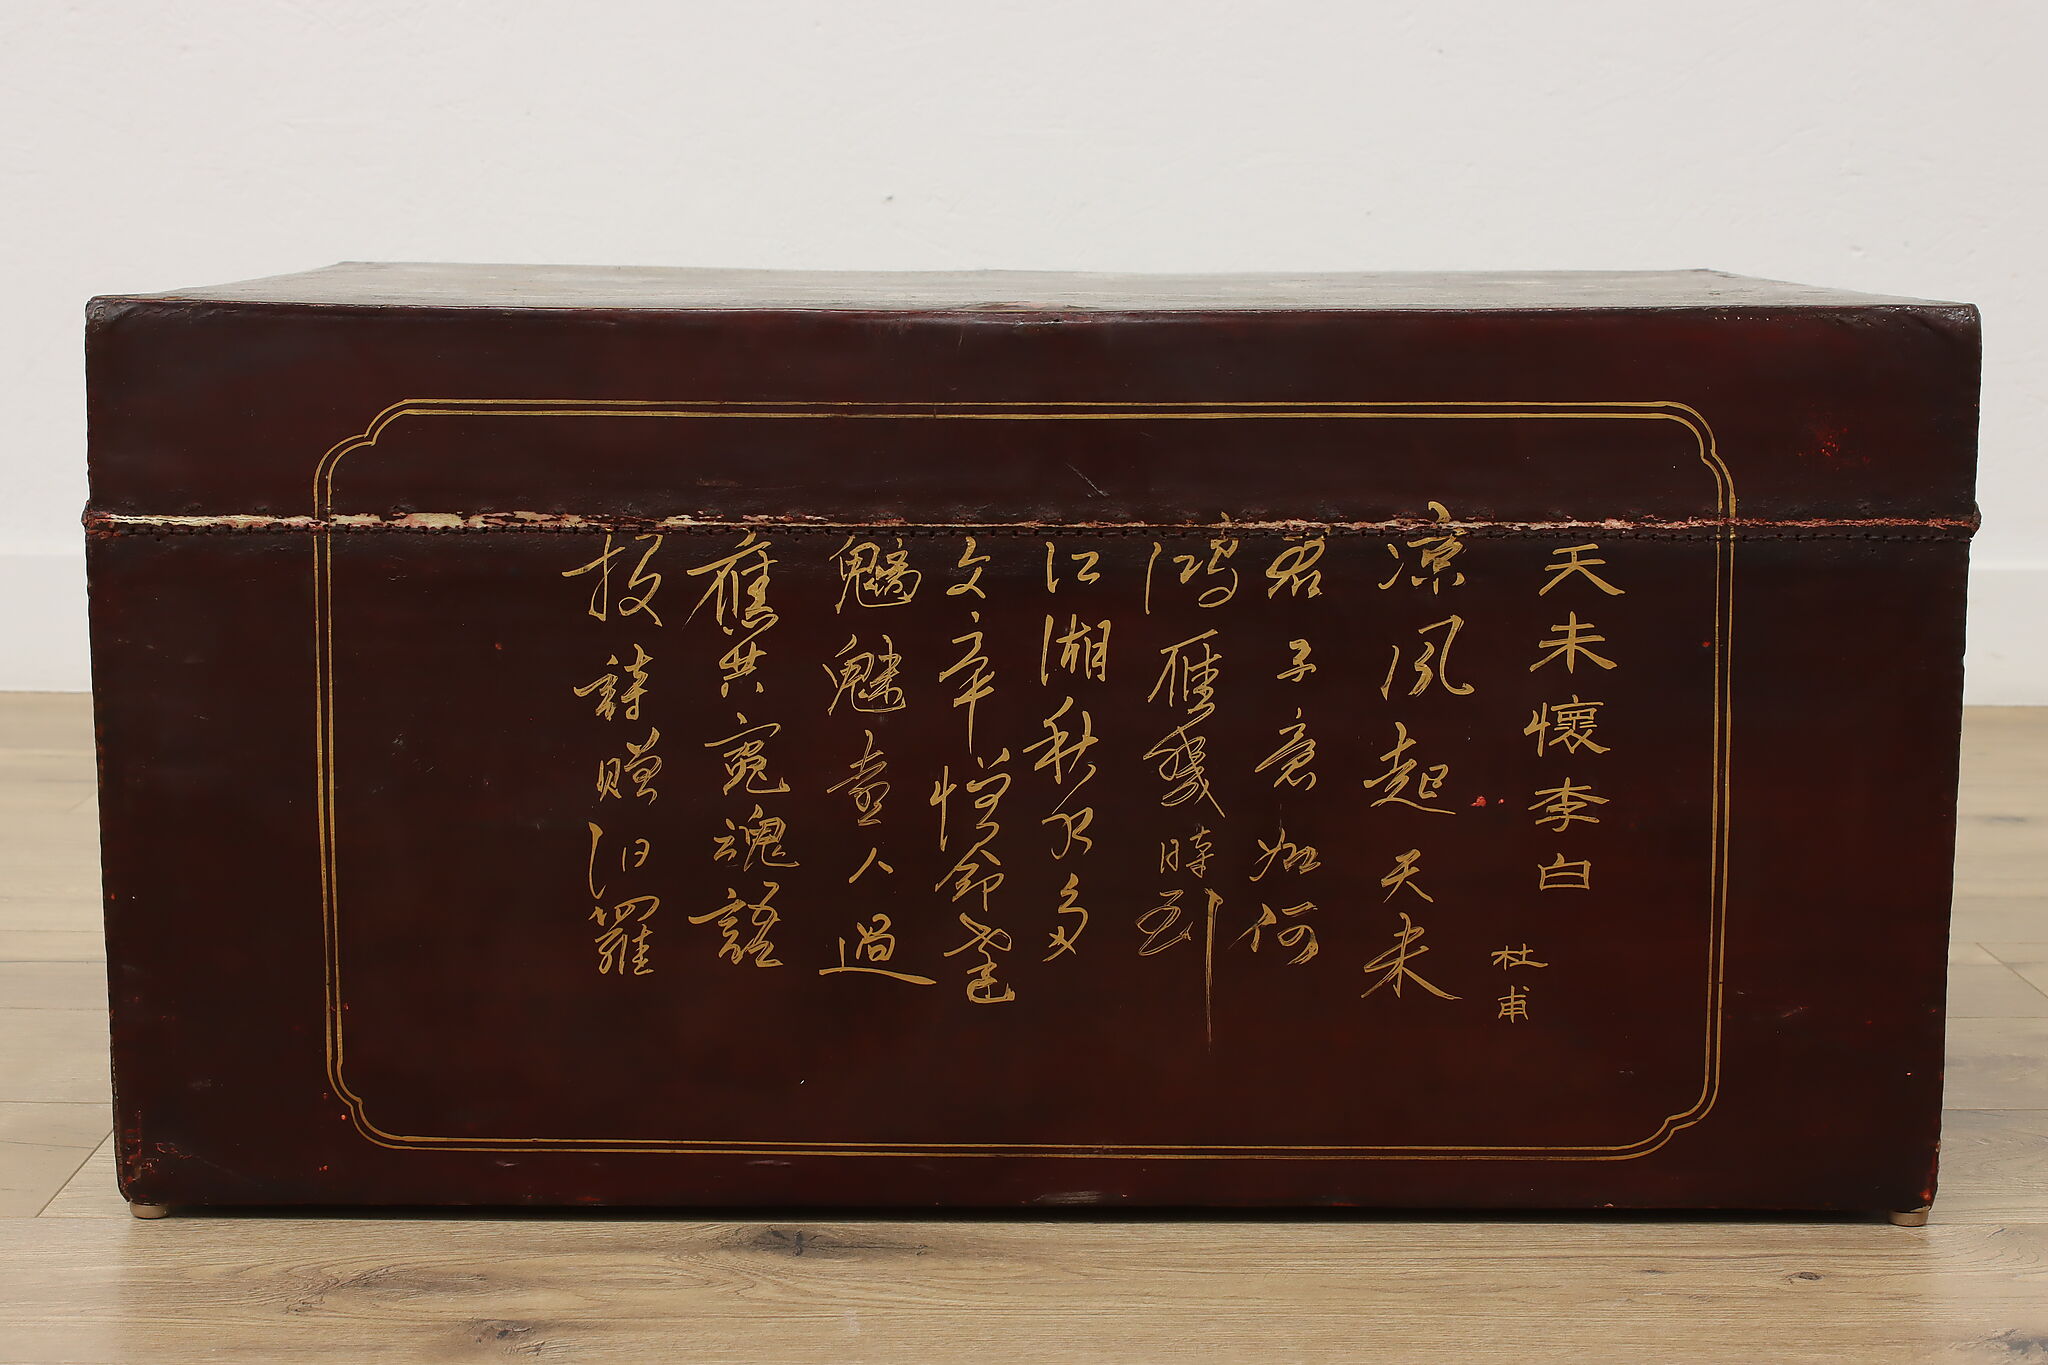 天未懷李白
杜甫
凉風起天未
君子意如何
鴻雁幾時到
江湖秋水多
文章憎命達
魑魅喜人過
應共寃魂語
投詩贈汨羅